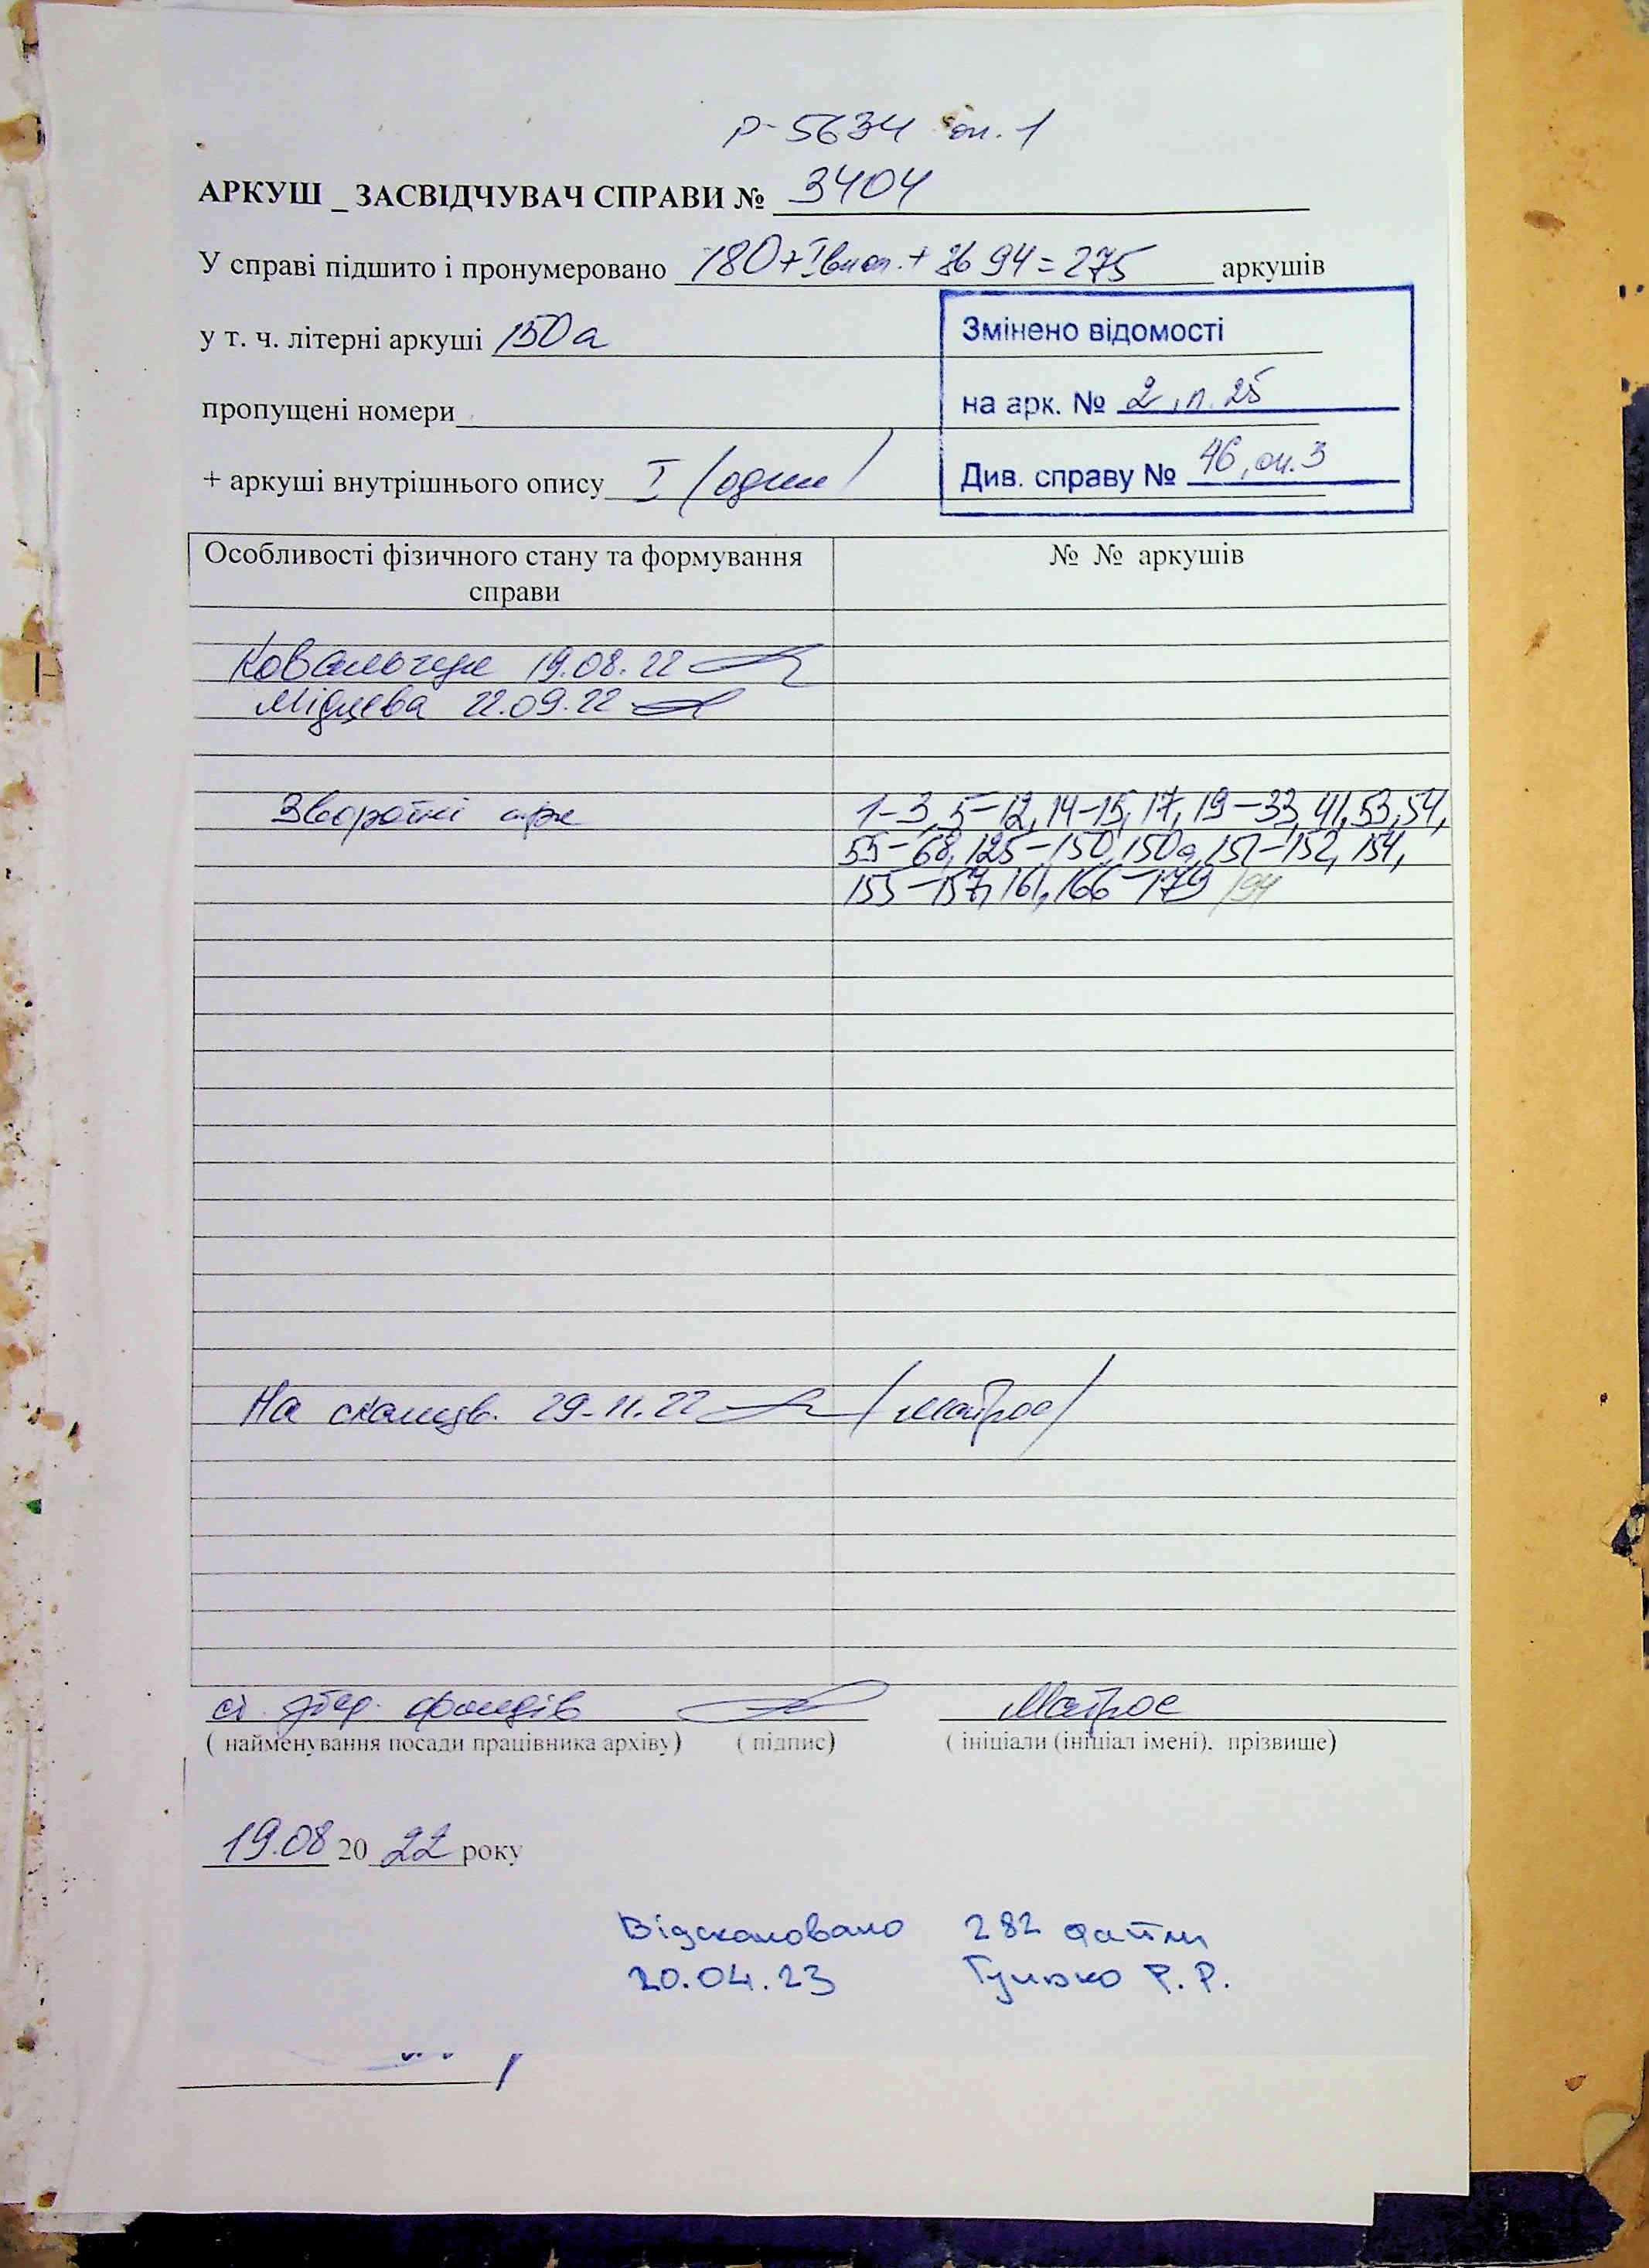 Р-5634 оп. 1
АРКУШ _ ЗАСВІДЧУВАЧ СПРАВИ № 3404
У справі підшито і пронумеровано 180 + I вн оп. + Зв 94 = 275 аркушів
у т. ч. літерні аркуші 150а
пропущені номери
+ аркуші внутрішнього опису I /один/
Змінено відомості
на арк. № 2, п. 25
Див. справу № 46, оп. 3
Особливості фізичного стану та формування справи
№ № аркушів
Ковальчук 19.08.22
Мідцева 22.09.22
Зворотні арк
1-3, 5-12, 14-15, 17, 19-33, 41, 53, 54,
55-68, 125-150, 150а, 151-152, 154,
155-157, 161, 166-179 /94
На сканув. 29.11.22 /Матрос/
ст. збер. фондів Матрос
( найменування посади працівника архіву) ( підпис) ( ініціали (ініціал імені), прізвище)
19.08 20 22 року
Відскановано 282 файли
20.04.23 Р. Р.